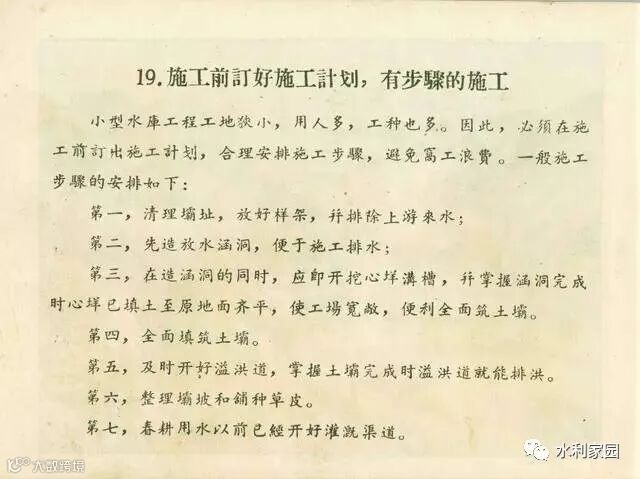 19.施工前訂好施工計划，有步驟的施工
小型水庫工程工地狹小，用人多，工种也多。因此，必須在施
工前訂出施工計划，合理安排施工步驟，避免窩工浪費。一般施工
步驟的安排如下：
第一，清理壩址，放好样架，幷排除上游來水；
第二，先造放水涵洞，便于施工排水；
第三，在造涵洞的同时，应即开挖心墙溝槽，幷掌握涵洞完成
时心墙已填土至原地面齐平，使工場寬敞，便利全面筑土壩。
第四，全面填筑土壩。
第五，及时开好溢洪道，掌握土壩完成时溢洪道就能排洪。
第六，整理壩坡和舖种草皮。
第七，春耕用水以前已經开好灌溉渠道。
水利家园
大数跨境